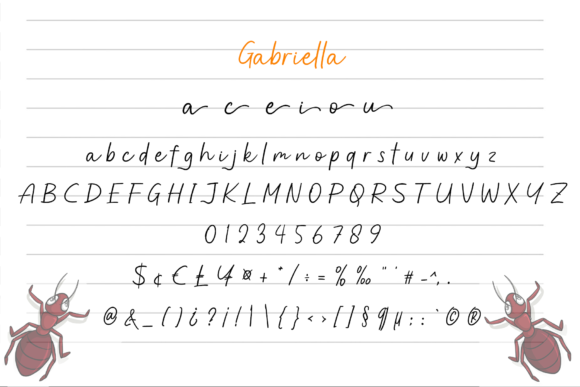 Gabriella
a c e i o u
a b c d e f g h i j k l m n o p q r s t u v w x y z
A B C D E F G H I J K L M N O P Q R S T U V W X Y Z
0 1 2 3 4 5 6 7 8 9
$ ¢ € £ ¥ ¤ + * / ÷ = % ‰ " ' # - ^ , .
@ & _ ( ) ¿ ? ¡ ! | \ { } < > [ ] § ¶ µ : ; ` © ®